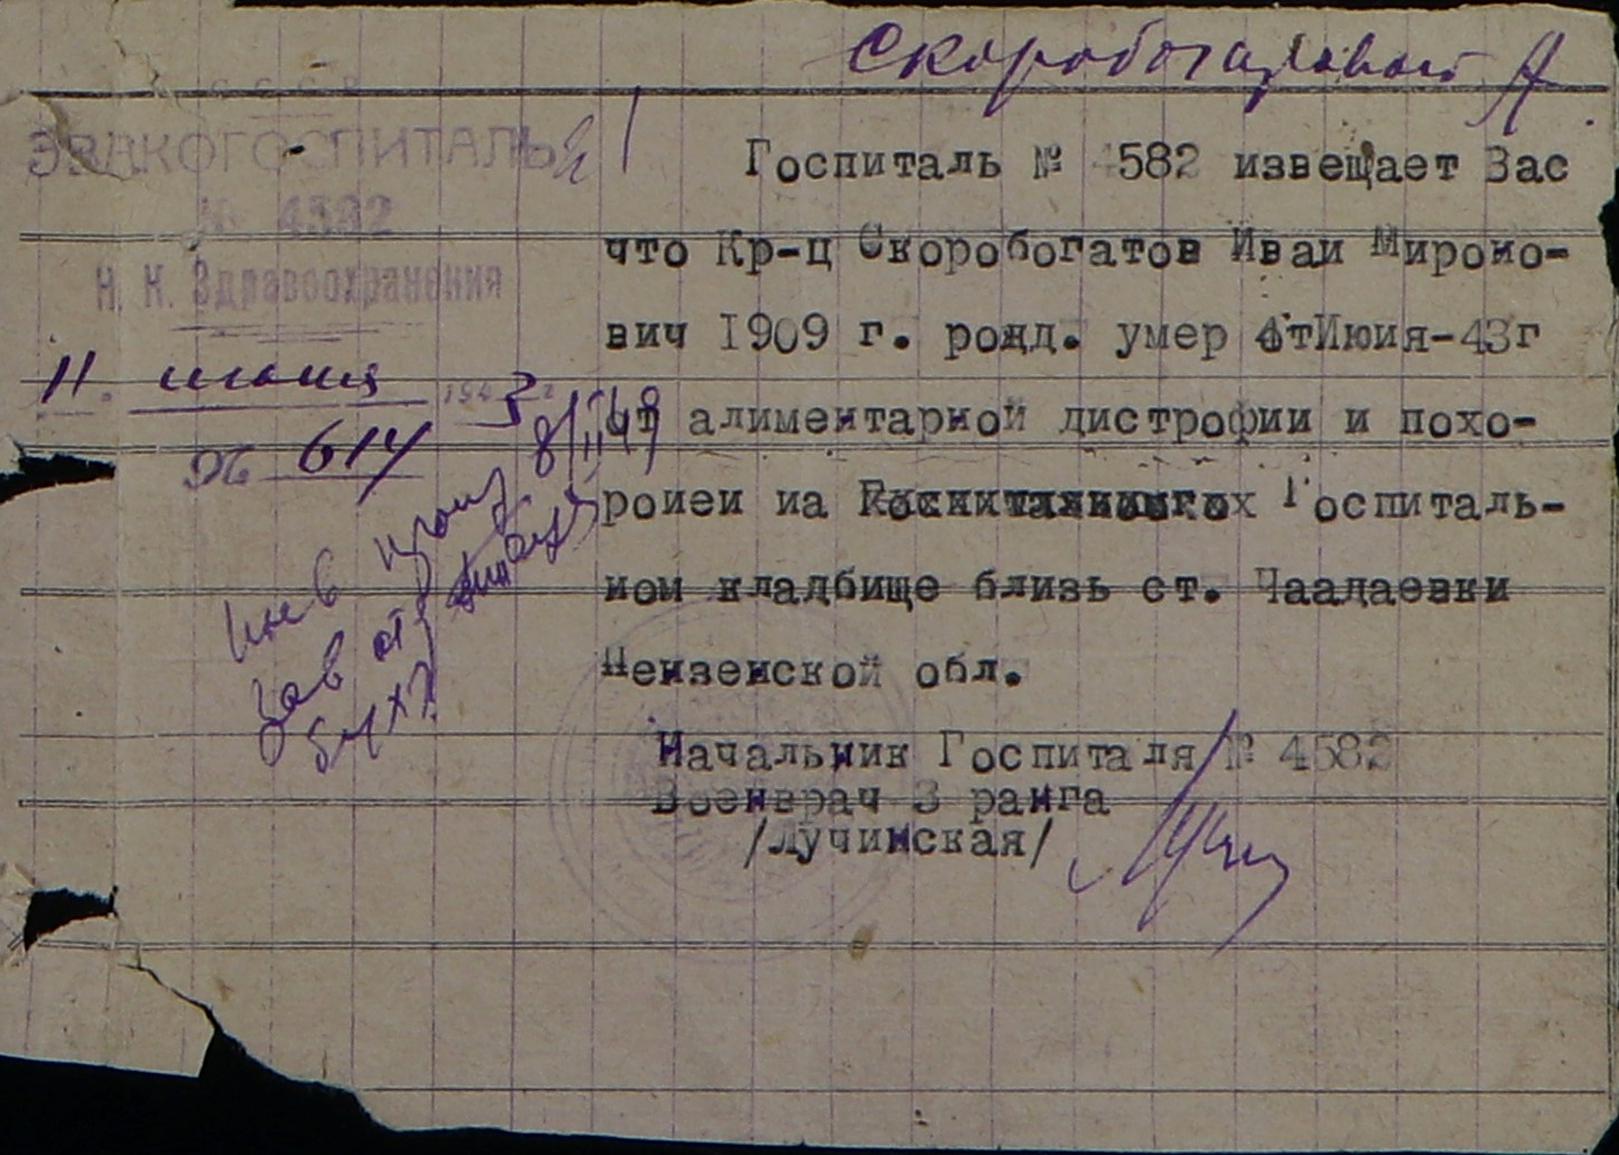 Скоробогатовой А.
СССР
ЭВАКОГОСПИТАЛЬ
№ 4582
Н. К. Здравоохранения
11. июня 1943 г
№ 614
Госпиталь № 4582 извещает Вас
что Кр-ц Скоробогатов Иван Мироно-
вич 1909 г. рожд. умер 4т Июня-43г
от алиментарной дистрофии и похо-
ронен на Госпиталь-
ном кладбище близь ст. Чаадаевки
Пензенской обл.
Начальник Госпиталя № 4582
Военврач 3 ранга
/Лучинская/